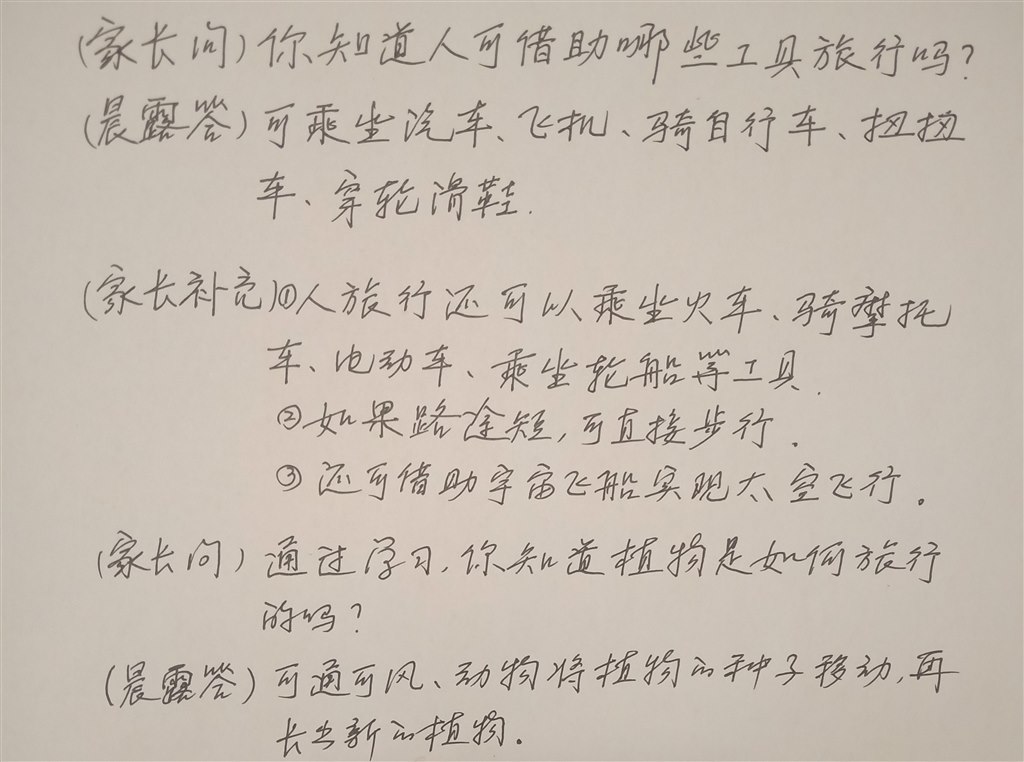 (家长问) 你知道人可借助哪些工具旅行吗?
(晨露答) 可乘坐汽车、飞机、骑自行车、扭扭
车、穿轮滑鞋.
(家长补充)①人旅行还可以乘坐火车、骑摩托
车、电动车、乘坐轮船等工具.
②如果路途短,可直接步行.
③还可借助宇宙飞船实现太空飞行。
(家长问) 通过学习,你知道植物是如何旅行
的吗?
(晨露答) 可通可风、动物将植物的种子移动,再
长出新的植物.